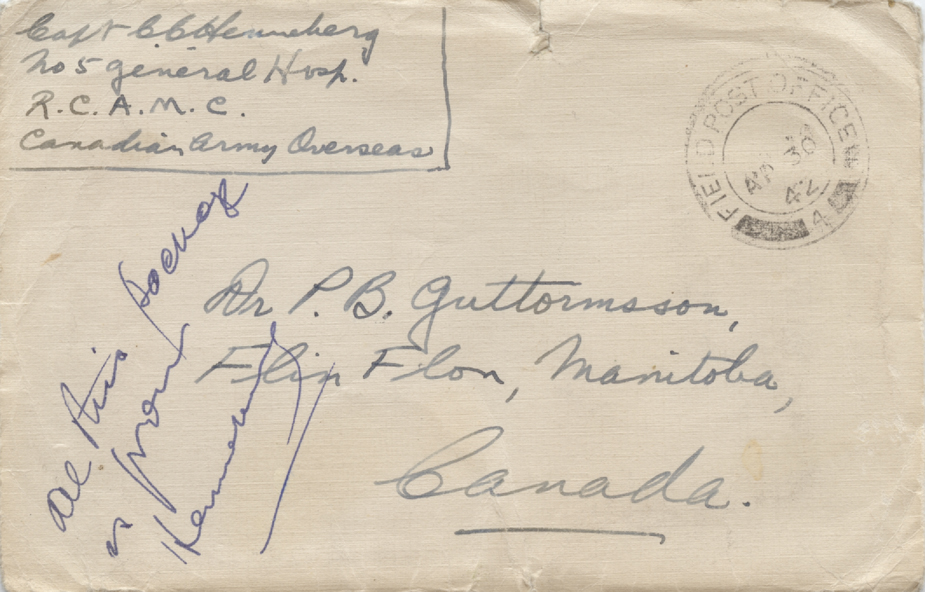 Capt C C Henneberg
No 5 General Hosp.
R.C.A.M.C.
Canadian Army Overseas
FIELD POST OFFICE
AP 30
42
4
Dr P. B. Guttormsson,
Flin Flon, Manitoba,
Canada.
all this
is from